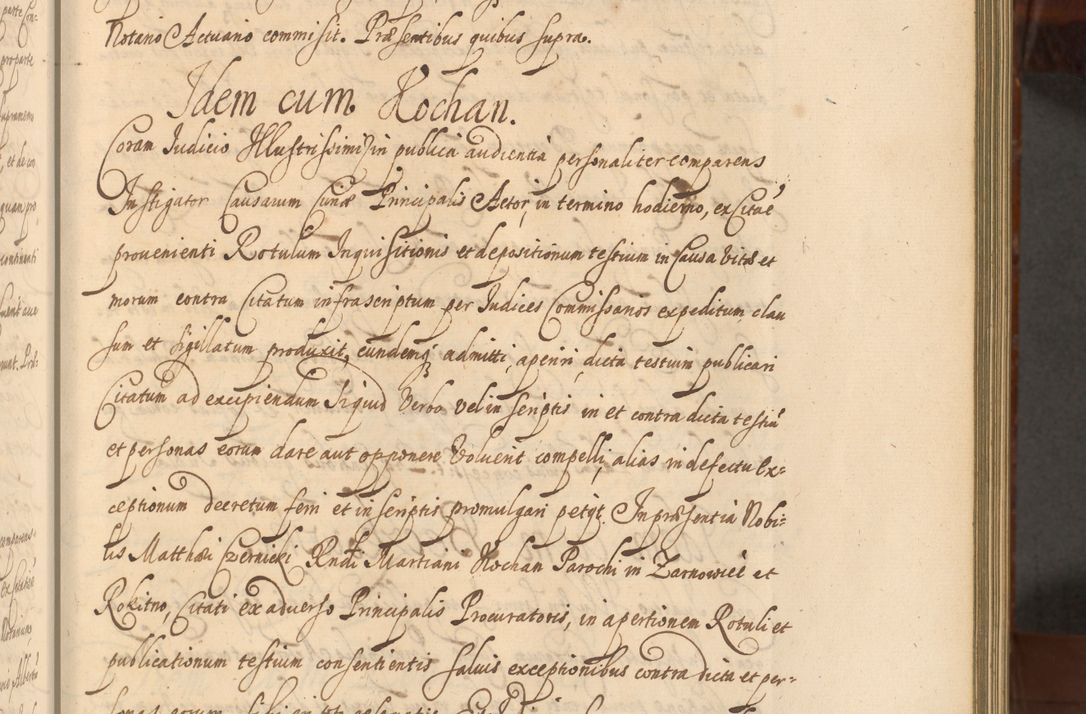 Notario Actuario commisit. Præsentibus quibus supra.
Idem cum Kochan.
Coram Judicio Illustrissimi) in publica audientia personaliter comparens
Instigator Causarum Curiæ Principalis Actor, in termino hodierno, ex Citãe
provenienti Rotulum Inquisitionis et depositionum testium in Causa vitæ et
morum contra Citatum infrascriptum per Judices Commissarios expeditum, clau
sum et sigillatum produxit, eundemq3 admitti, aperiri, dicta testium publicari
Citatum ad excipiendum siquid Verbo vel in scriptis in et contra dicta testiũ
et personas eorum dare aut opponere Voluerit compelli, alias in defectu Ex=
ceptionum decretum ferri et in scriptis promulgari petijt. In præsentia Nobi=
lis Matthæi Czernicki Rndi Martiani Kochan Parochi in Zarnowiec et
Rokitno, Citati ex adverso Principalis Procuratoris, in apertionem Rotuli et
publicationum testium consentientis salvis exceptionibus contra dicta et per=
sonas eorum